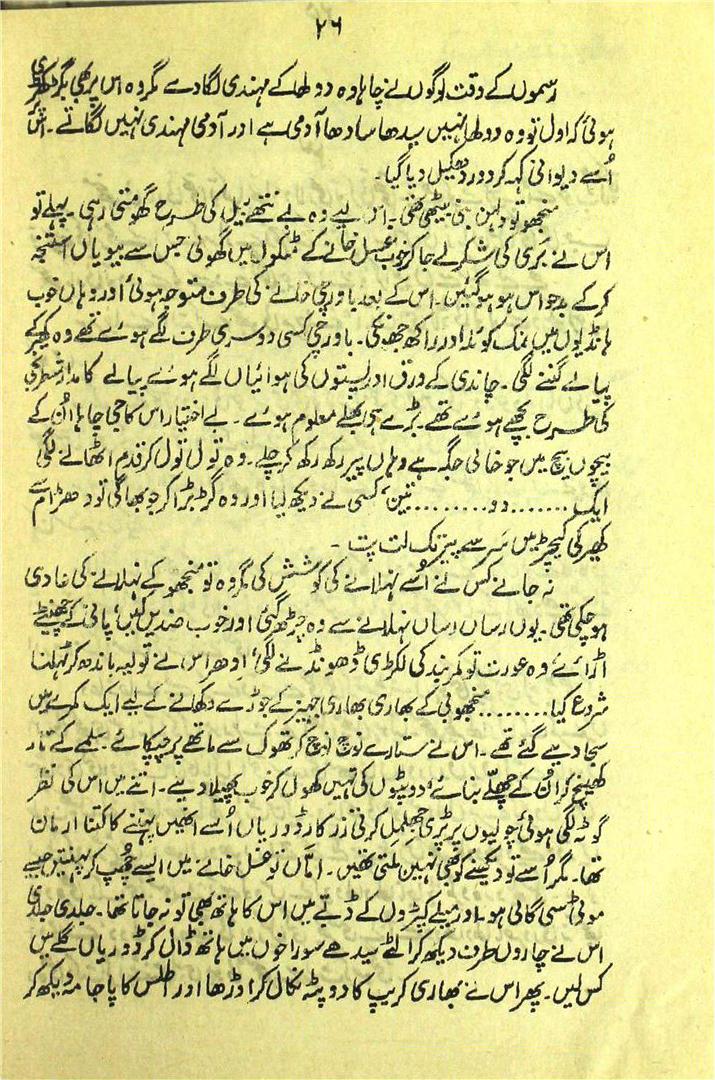 ۲۶
رسموں کے وقت لوگوں نے چاہا وہ دولھا کے مہندی لگا دے مگر وہ اس پر بھی بگڑ کھڑی
ہوئی کہ اول تو وہ دولھا نہیں سیدھا سادھا آدمی ہے اور آدمی مہندی نہیں لگاتے۔ اس پر
اُسے دیوانی کہہ کر دور دھکیل دیا گیا۔
منجھو تو دلہن بنی بیٹھی تھی۔ اس لیے وہ بے نتھے بیل کی طرح گھومتی رہی۔ پہلے تو
اس نے بَری کی شکر لے جا کر خوب غسل خانے کے مٹکوں میں گھولی جس سے بیویاں استنجہ
کر کے بدحواس ہو ہو گئیں۔ اس کے بعد باورچی خانے کی طرف متوجہ ہوئی اور وہاں خوب
ہانڈیوں میں نمک کوئلہ اور راکھ جھونکی۔ باورچی کسی دوسری طرف لگے ہوئے تھے وہ کھیر کے
پیالے گننے لگی۔ چاندی کے ورق اور پستوں کی ہوائیاں لگے ہوئے پیالے کامدار شطرنجی
کی طرح بچھے ہوئے تھے بڑے ہی بھلے معلوم ہوئے۔ بے اختیار اس کا جی چاہا اُن کے
بیچوں بیچ میں جو خالی جگہ ہے وہاں پیر رکھ رکھ کر چلے۔ وہ تول تول کر قدم اٹھانے لگی
ایک ....... دو......... تین، کسی نے دیکھ لیا اور وہ گڑبڑا کر جو بھاگی تو دھڑام سے
کھیر کی کیچڑ میں سَر سے پیر تک لت پت۔
نہ جانے کس نے اُسے نہلانے کی کوشش کی مگر وہ تو منجھو کے نہلانے کی عادی
ہو چکی تھی۔ یوں رساں رساں نہلانے سے وہ چڑھ گئی اور خوب ضدیں کیں، پانی کے چھینٹے
اڑائے، وہ عورت تو کمربند کی لکڑی ڈھونڈنے لگی، اِدھر اس نے تولیہ باندھ کر ٹہلنا
شروع کیا........ منجھو بی کے بھاری بھاری جہیز کے جوڑے دکھانے کے لیے ایک کمرے میں
سجا دیے گئے تھے۔ اس نے ستارے نوچ نوچ کر تھوک سے ماتھے پر چپکائے۔ سلمے کے تار
کھینچ کر اُن کے چھلّے بنائے، دوپٹوں کی تہیں کھول کر خوب پھیلا دیے۔ اتنے میں اس کی نظر
گوٹہ لگی ہوئی چولیوں پر پڑی جھلمل کرتی زر کار ڈوریاں اُسے انھیں پہننے کا کتنا ارمان
تھا۔ مگر اُسے تو دیکھنے کو بھی نہیں ملتی تھیں۔ اماّں تو غسل خانے میں ایسے چُھپ کر پہنتیں جیسے
موئی سی گالی ہو۔ اور میلے کپڑوں کے ڈبّے میں اس کا ہاتھ بھی تو نہ جاتا تھا۔ جلدی جلدی
اس نے چاروں طرف دیکھ کر الٹے سیدھے سوراخوں میں ہاتھ ڈال کر ڈوریاں گلے میں
کس لیں۔ پھر اس نے بھاری کریپ کا دوپٹہ نکال کر اوڑھا اور اطلس کا پاجامہ دیکھ کر